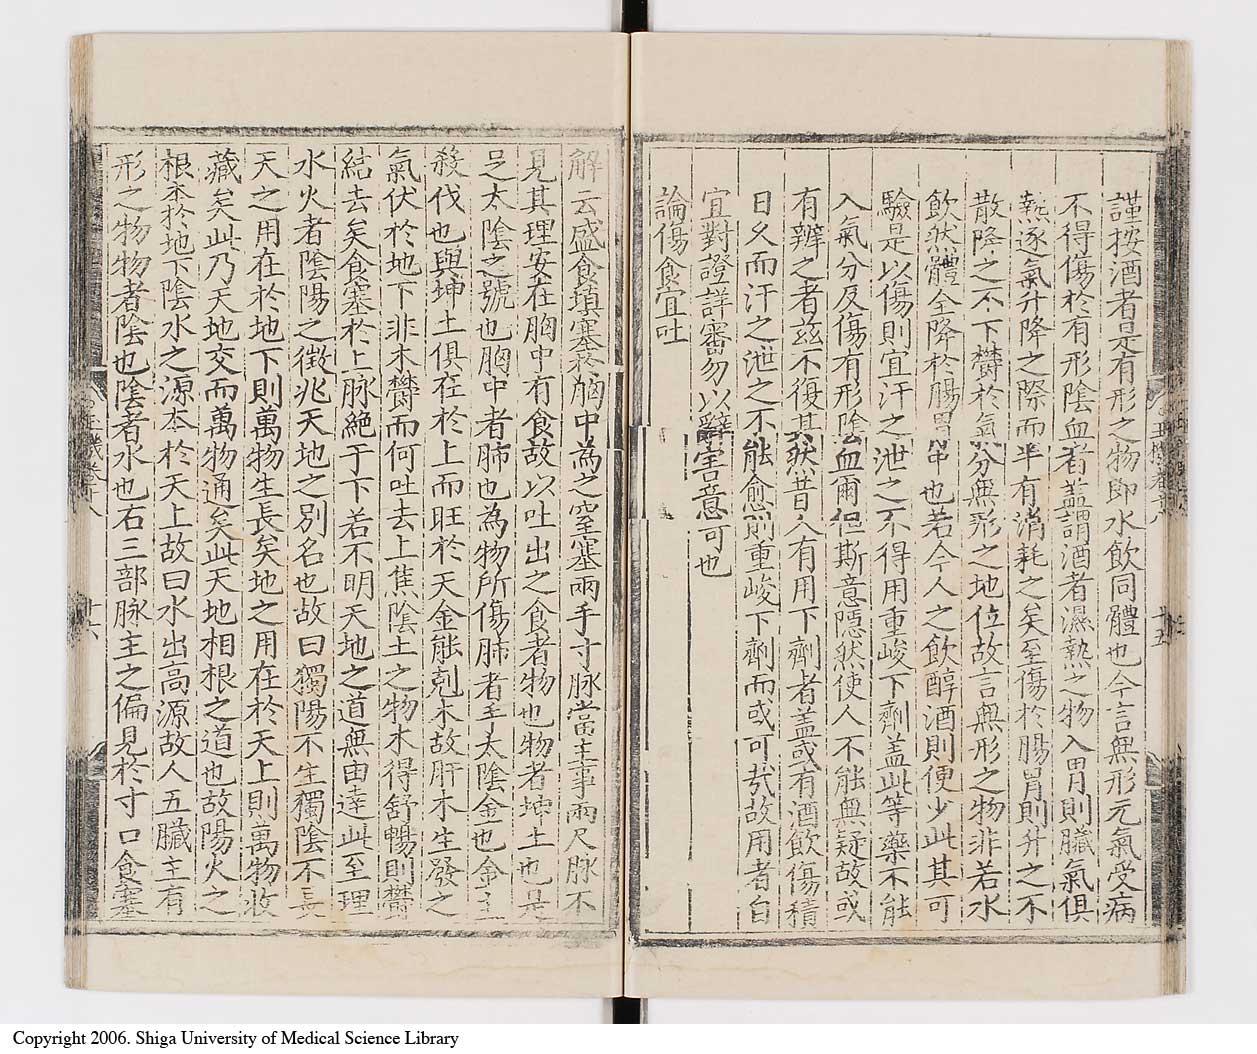 謹按酒者是有形之物即水飲同體也今言無形元氣受病
不得傷於有形陰血者蓋謂酒者濕熱之物入胃則臟氣俱
熱逐氣升降之際而半有消耗之矣至傷於腸胃則升之不
散降之不下鬱於氣分無形之地位故言無形之物非若水
飲然體全降於腸胃中也若今人之飲醇酒則便少此其可
驗是以傷則宜汗之泄之不得用重峻下劑蓋此等藥不能
入氣分反傷有形陰血爾但斯意隱然使人不能無疑故或
有辨之者茲不復其然昔人有用下劑者蓋或有酒飲傷積
日久而汗之泄之不能愈則重峻下劑而或可㢤故用者自
宜對證詳審勿以辭害意可也
論傷食宜吐
解云盛食填塞於胸中為之窒塞兩手寸脉當主事兩尺脉不
見其理安在胸中有食故以吐出之食者物也物者坤土也是
足太陰之號也胸中者肺也為物所傷肺者手太陰金也金主
殺伐也與坤土俱在於上而旺於天金能剋木故肝木生發之
氣伏於地下非木鬱而何吐去上焦陰土之物木得舒暢則鬱
結去矣食塞於上脉絶于下若不明天地之道無由達此至理
水火者陰陽之徴兆天地之別名也故曰獨陽不生獨陰不長
天之用在於地下則萬物生長矣地之用在於天上則萬物收
藏矣此乃天地交而萬物通矣此天地相根之道也故陽火之
根夲於地下陰水之源夲於天上故曰水出高源故人五臟主有
形之物物者陰也陰者水也右三部脉主之偏見於寸口食塞
玉機卷十八
十六
十五